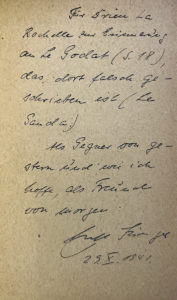 Für Drieu La
Rochelle zur Erinnerung
an Le Godat (S. 18),
das dort falsch ge-
schrieben ist (Le
Gandà)
Als Gegner von ge-
stern und wie ich
hoffe, als Freund
von morgen
Ernst Jünger
1941.